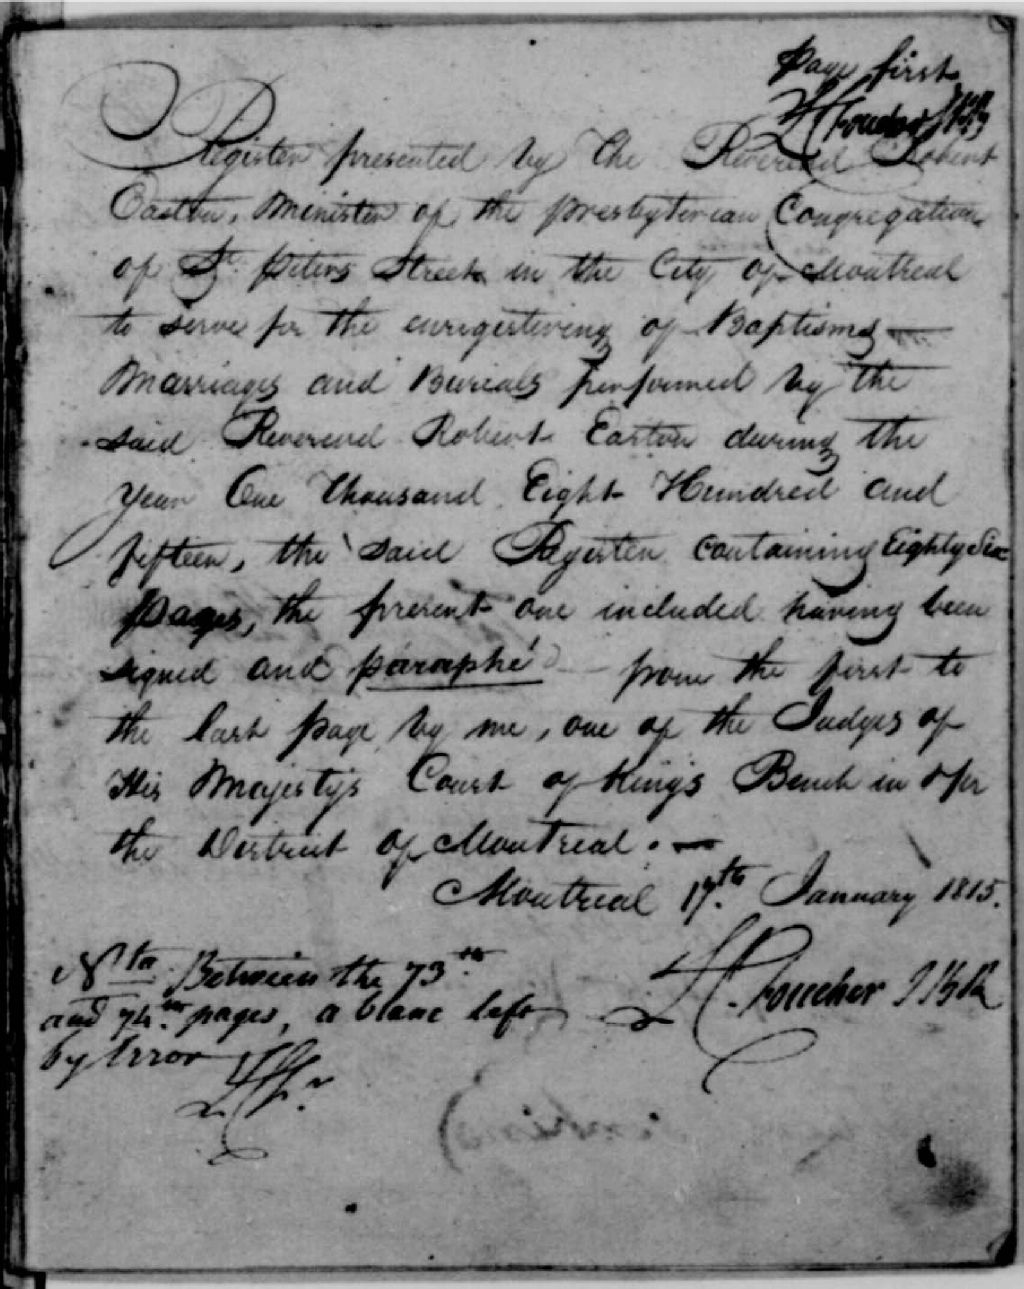 Page first
L C Foucher J B R
Register presented by the Reverend Robert
Easton, Minister of the presbyterian Congregation
of St. Peters Street in the City of Montreal
to serve for the enregistering of Baptisms
Marriages and Burials performed by the
said Reverend Robert Easton during the
year One Thousand Eight Hundred and
fifteen, the said Register containing Eighty Six
pages, the present one included having been
signed and paraphé from the first to
the last page by me, one of the Judges of
His Majesty's Court of King's Bench in & for
the District of Montreal. —
Montreal 17th. January 1815.
L C. Foucher J B R
Nta. Between the 73th
and 74th. pages, a blanc left
by Error